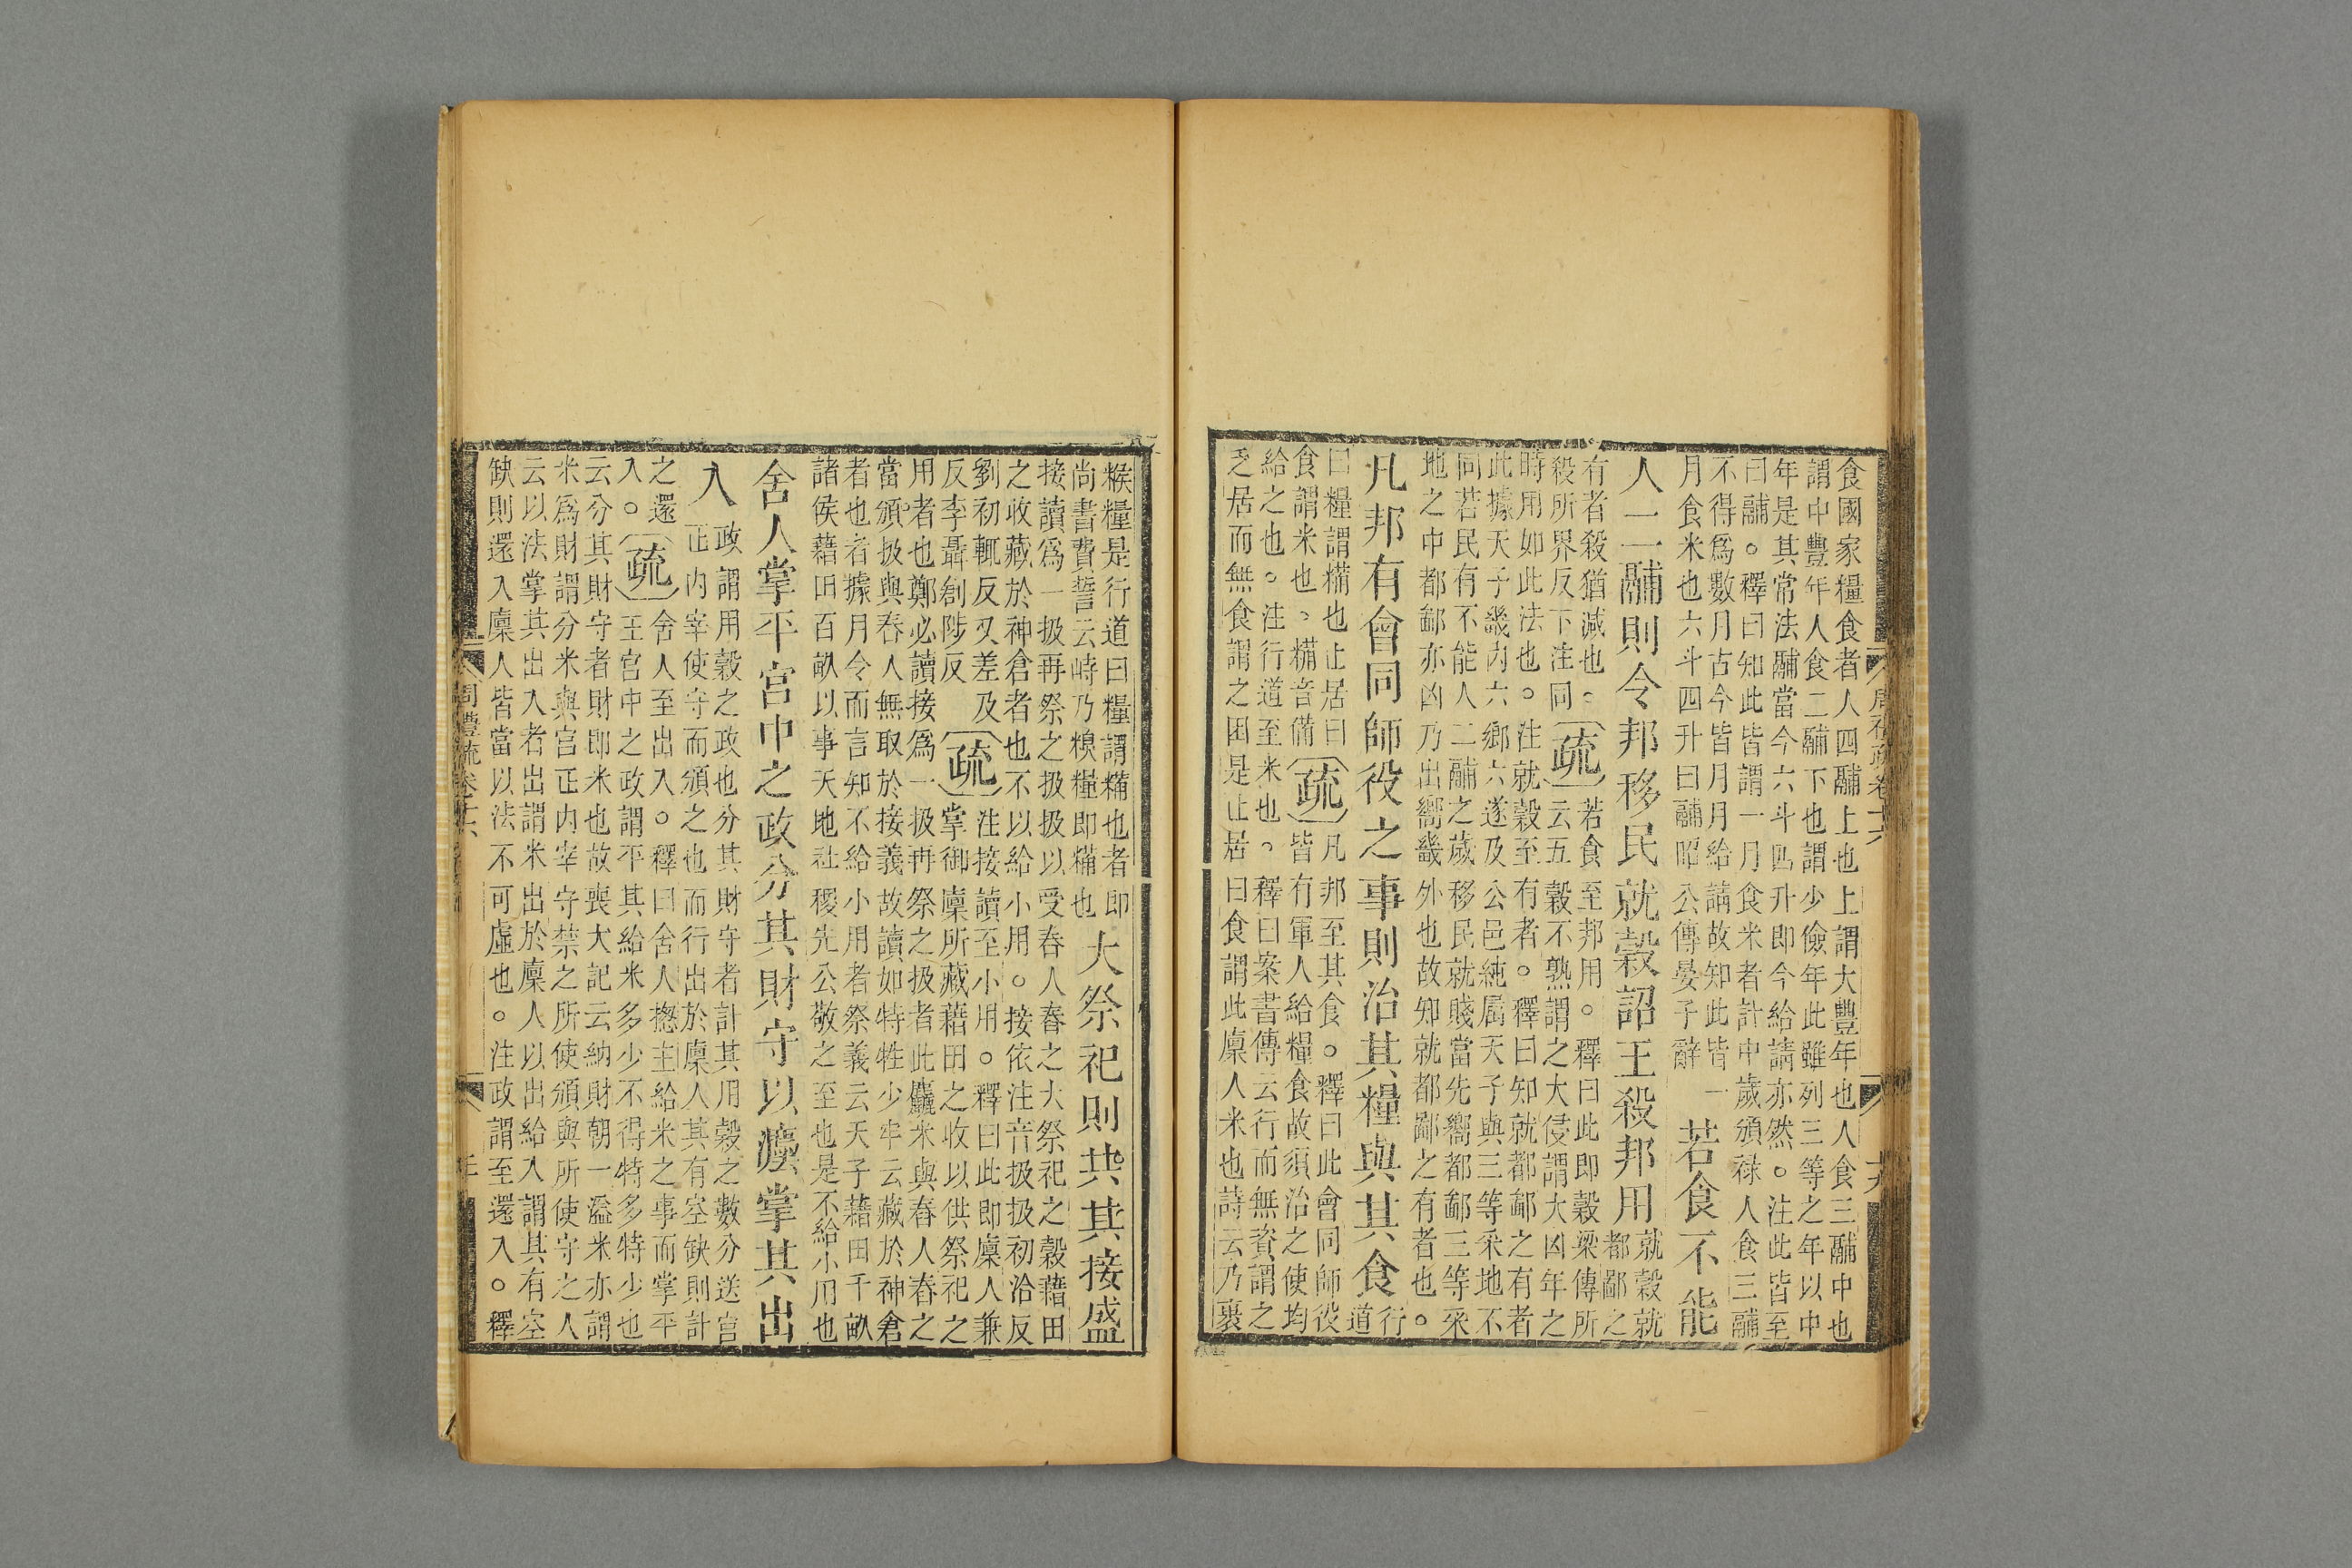 食國家糧食者人四鬴上也上謂大豐年也人食三鬴中也
謂中豐年人食二鬴下也謂少儉年此雖列三等之年以中
年是其常法鬴當今六斗四升即今給請亦然。注此皆至
曰鬴。釋曰知此皆謂一月食米者計中歲頒祿人食三鬴
不得爲數月古今皆月月給請故知此皆一
月食米也六斗四升曰鬴昭公傳晏子辭
若食不能
人二鬴則令邦移民就穀詔王殺邦用
就穀就
都鄙之
有者殺猶減也。
殺所界反下注同
疏
若食至邦用。釋曰此即穀梁傳所
云五穀不熟謂之大侵謂大凶年之
時用如此法也。注就穀至有者。釋曰知就都鄙之有者
此據天子畿內六鄉六遂及公邑純屬天子與三等采地不
同若民有不能人二鬴之歲移民就賤當先嚮都鄙三等采
地之中都鄙亦凶乃出嚮畿外也故知就都鄙之有者也。
凡邦有會同師役之事則治其糧與其食
行
道
曰糧謂糒也止居曰
食謂米也。糒音備
疏
凡邦至其食。釋曰此會同師役
皆有軍人給糧食故須治之使均
給之也。注行道至米也。釋曰案書傳云行而無資謂之
乏居而無食謂之困是止居曰食謂此廩人米也詩云乃裹
周禮疏卷十六
餱糧是行道曰糧謂糒也者即
尚書費誓云峙乃糗糧即糒也
大祭祀則共其接盛
接讀爲一扱再祭之扱扱以受舂人舂之大祭祀之穀藉田
之收藏於神倉者也不以給小用。接依注音扱扱初洽反
劉初輒反又差及
反李聶創陟反
疏
注接讀至小用。釋曰此即廩人兼
掌御廩所藏藉田之收以供祭祀之
用者也鄭必讀接爲一扱再祭之扱者此麤米與舂人舂之
當須扱與舂人無取於接義故讀如特牲少牢云藏於神倉
者也者據月令而言知不給小用者祭義云天子藉田千畝
諸侯藉田百畝以事天地社稷先公敬之至也是不給小用也
舍人掌平宮中之政分其財守以灋掌其出
入
政謂用穀之政也分其財守者計其用穀之數分送宮
正內宰使守而頒之也而行出於廩人其有空缺則計
之還
入。
疏
舍人至出入。釋曰舍人摠主給米之事而掌平
王宮中之政謂平其給米多少不得特多特少也
云分其財守者財即米也故喪大記云納財朝一溢米亦謂
米爲財謂分米與宮正內宰守禁之所使頒與所使守之人
云以法掌其出入者出謂米出於廩人以出給入謂其有空
缺則還入廩人皆當以法不可虛也。注政謂至還入。釋
周禮疏卷十六